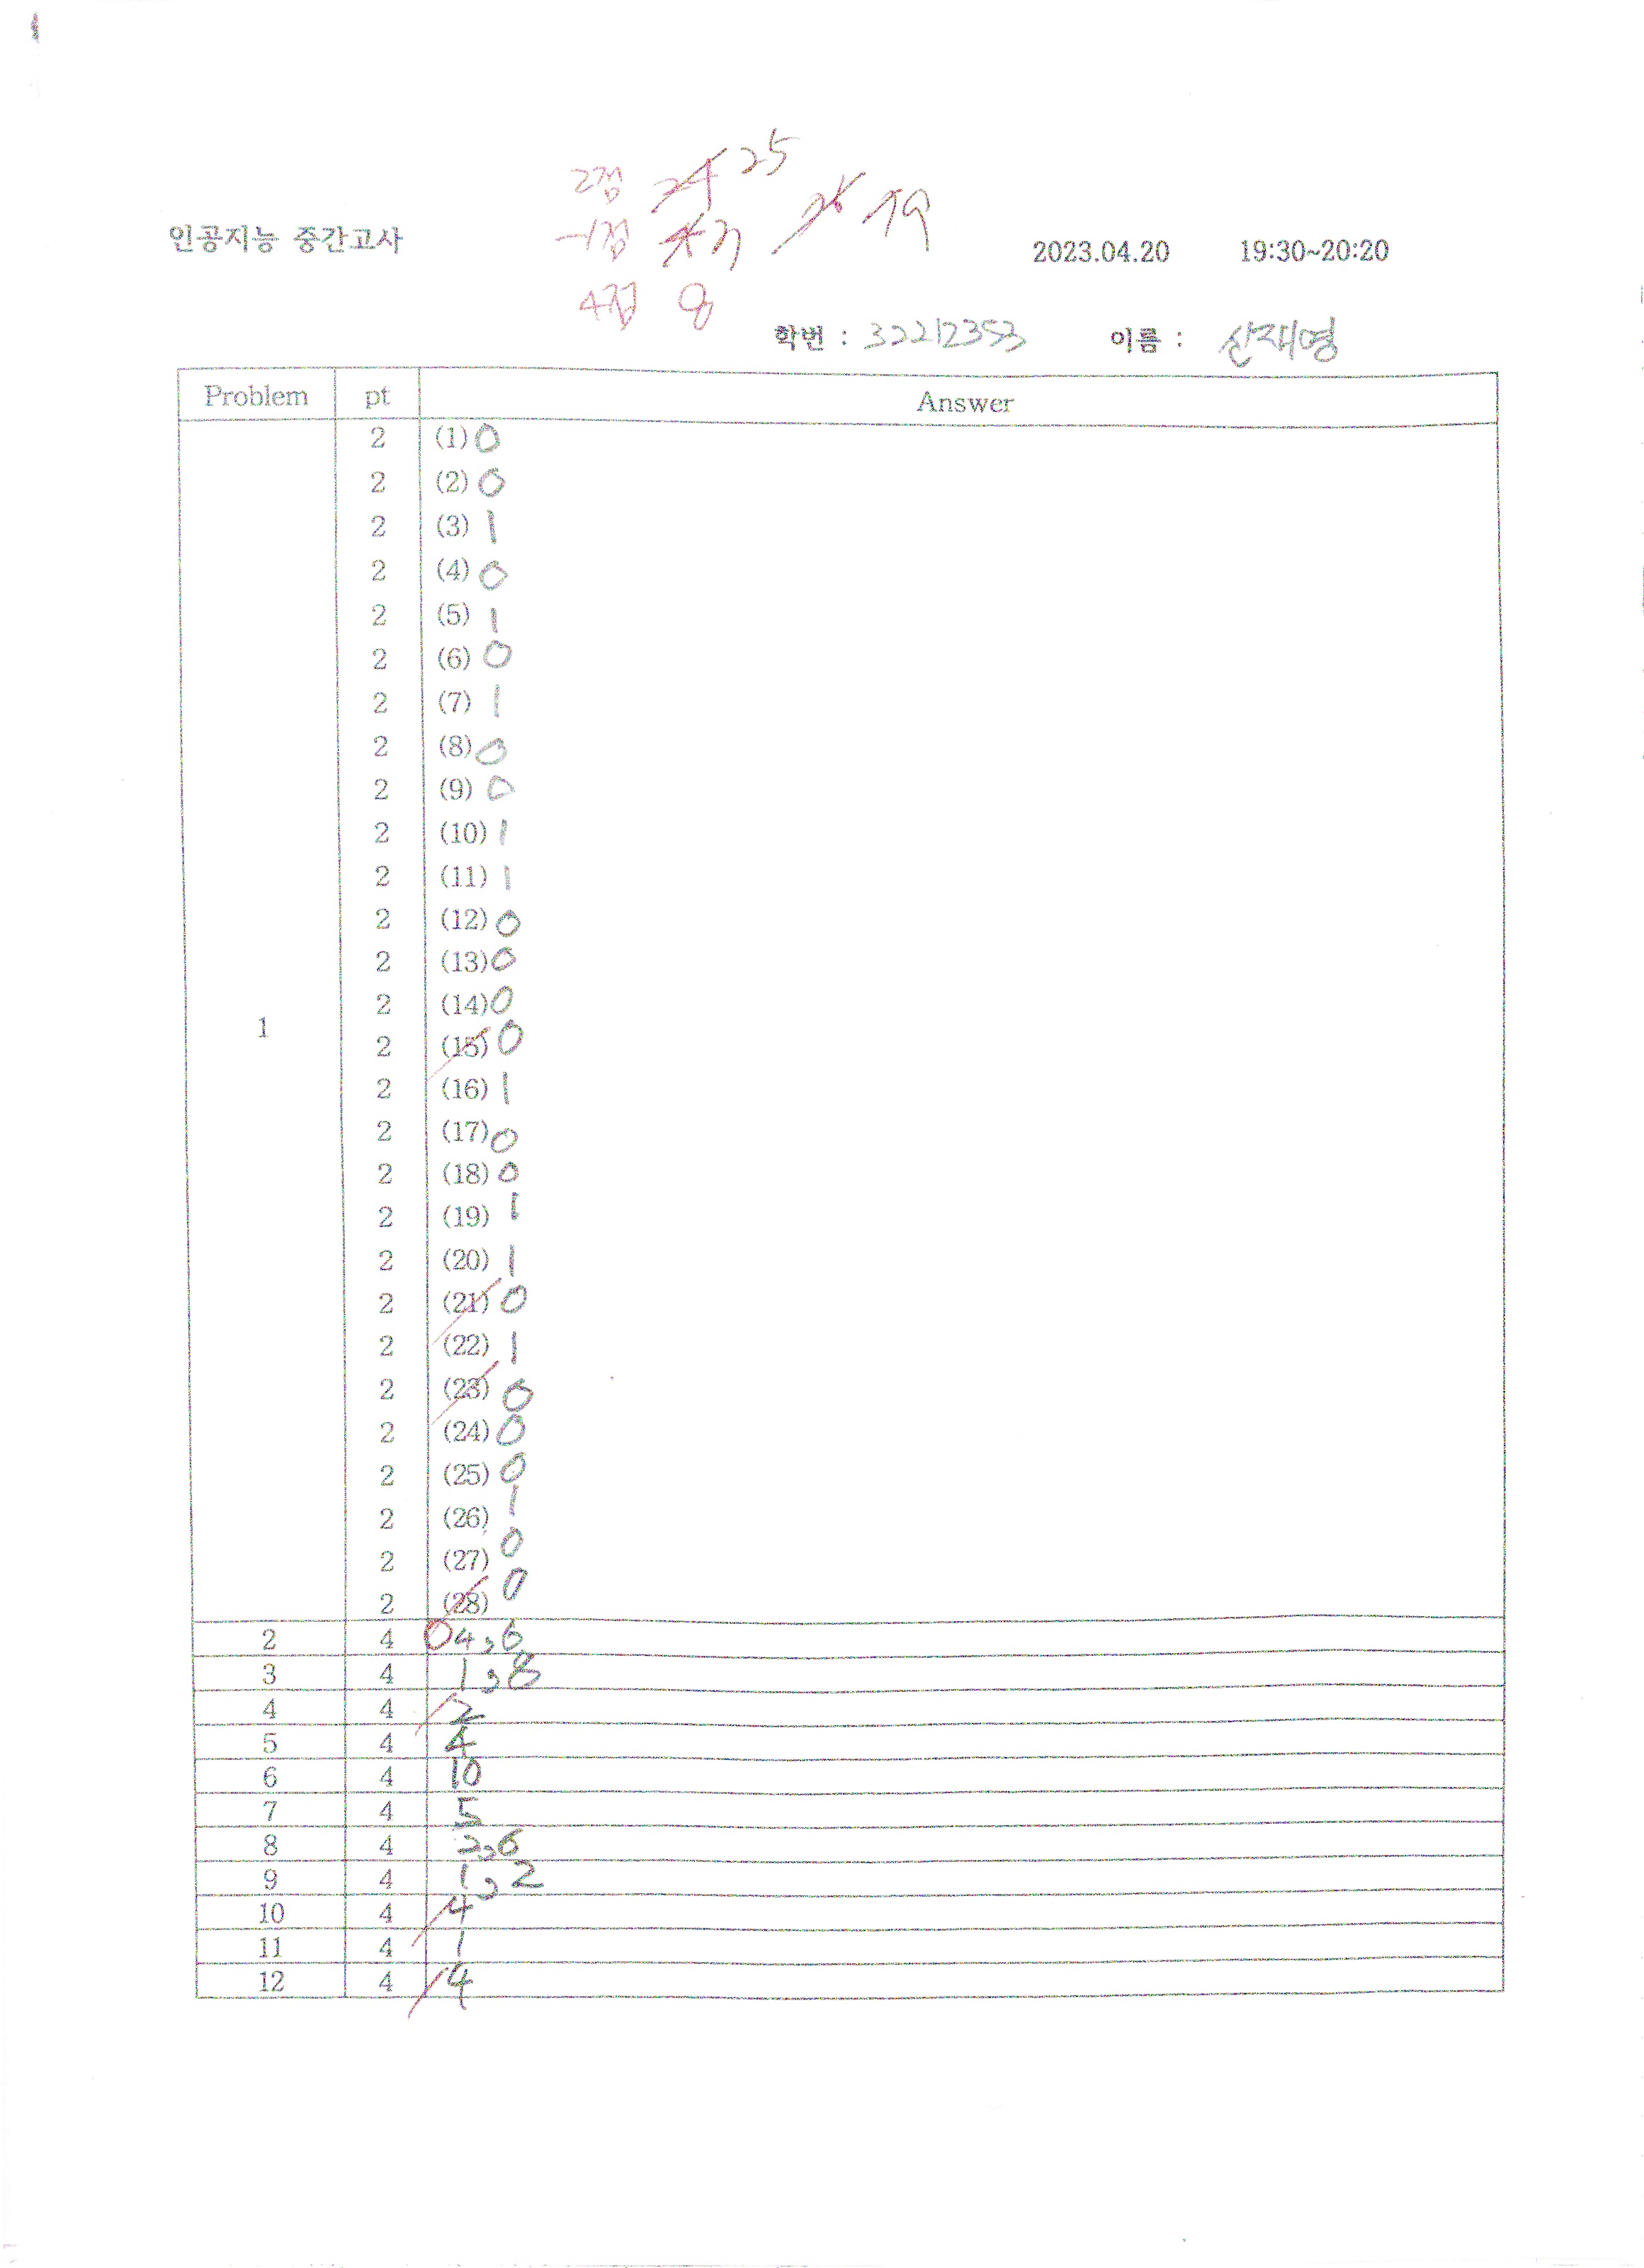 2점 24 25
인공지능 중간고사 -1점 4 3 76 79 2023.04.20 19:30~20:20
4점 8
학번 : 32212353 이름 : 신재영
Problem pt Answer
2 (1) 0
2 (2) 0
2 (3) 1
2 (4) 0
2 (5) 1
2 (6) 0
2 (7) 1
2 (8) 0
2 (9) 0
2 (10) 1
2 (11) 1
2 (12) 0
2 (13) 0
2 (14) 0
1 2 (15) 0
2 (16) 1
2 (17) 0
2 (18) 0
2 (19) 1
2 (20) 1
2 (21) 0
2 (22) 1
2 (23) 0
2 (24) 0
2 (25) 0
2 (26) 1
2 (27) 0
2 (28) 0
2 4 4,6
3 4 1,8
4 4 2
5 4 4
6 4 10
7 4 5
8 4 2,6
9 4 1,2
10 4 4
11 4 1
12 4 4